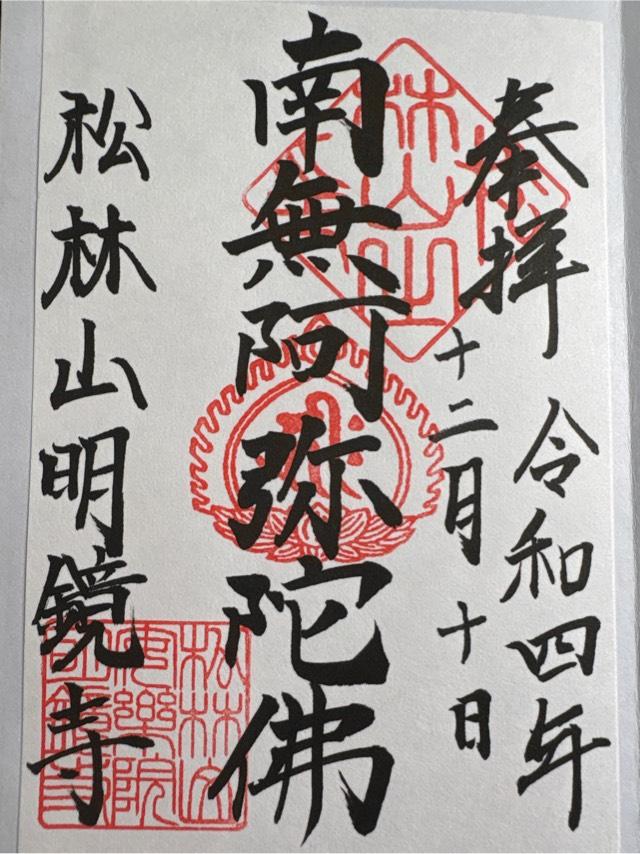 奉拝
令和四年
十二月十日
南無阿弥陀佛
松林山明鏡寺
松林山